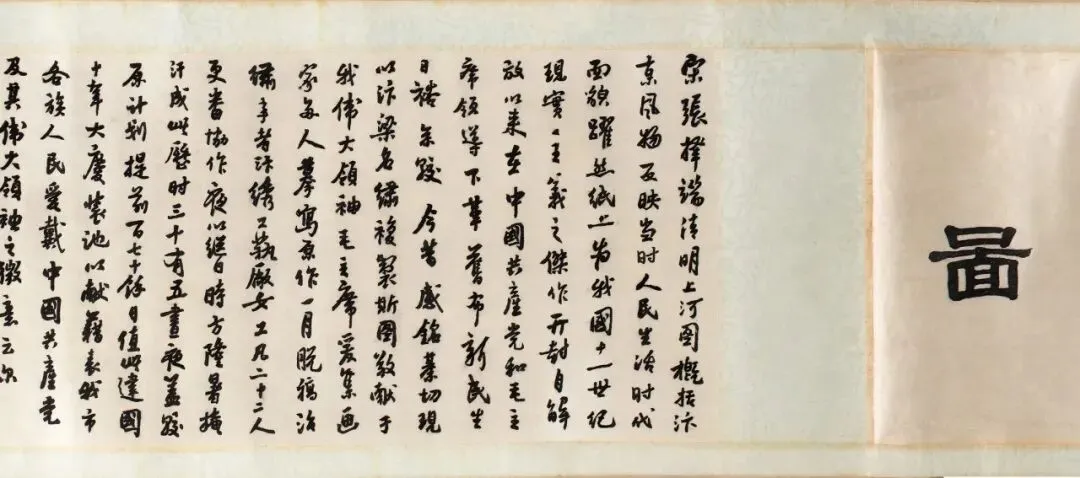 圖
宋張擇端清明上河图概括汴
京風物反映当时人民生活时代
面貌躍然紙上为我國十一世纪
現實主義之傑作开封自解
放以来在中國共產党和毛主
席领導下革舊布新民生
日裕每较今昔感銘綦切現
以汴梁名繡複製斯图敬献于
我伟大领袖毛主席爰集画
家多人摹寫原作一月脱稿治
繡手者汴绣工藝廠女工凡二十二人
更番协作夜以继日時方隆暑揮
汗成此歷时三十有五晝夜盖较
原计划提前百七十餘日值此建國
十年大慶裝池以献藉表我市
各族人民愛戴中國共產党
及其伟大领袖之微意云尔